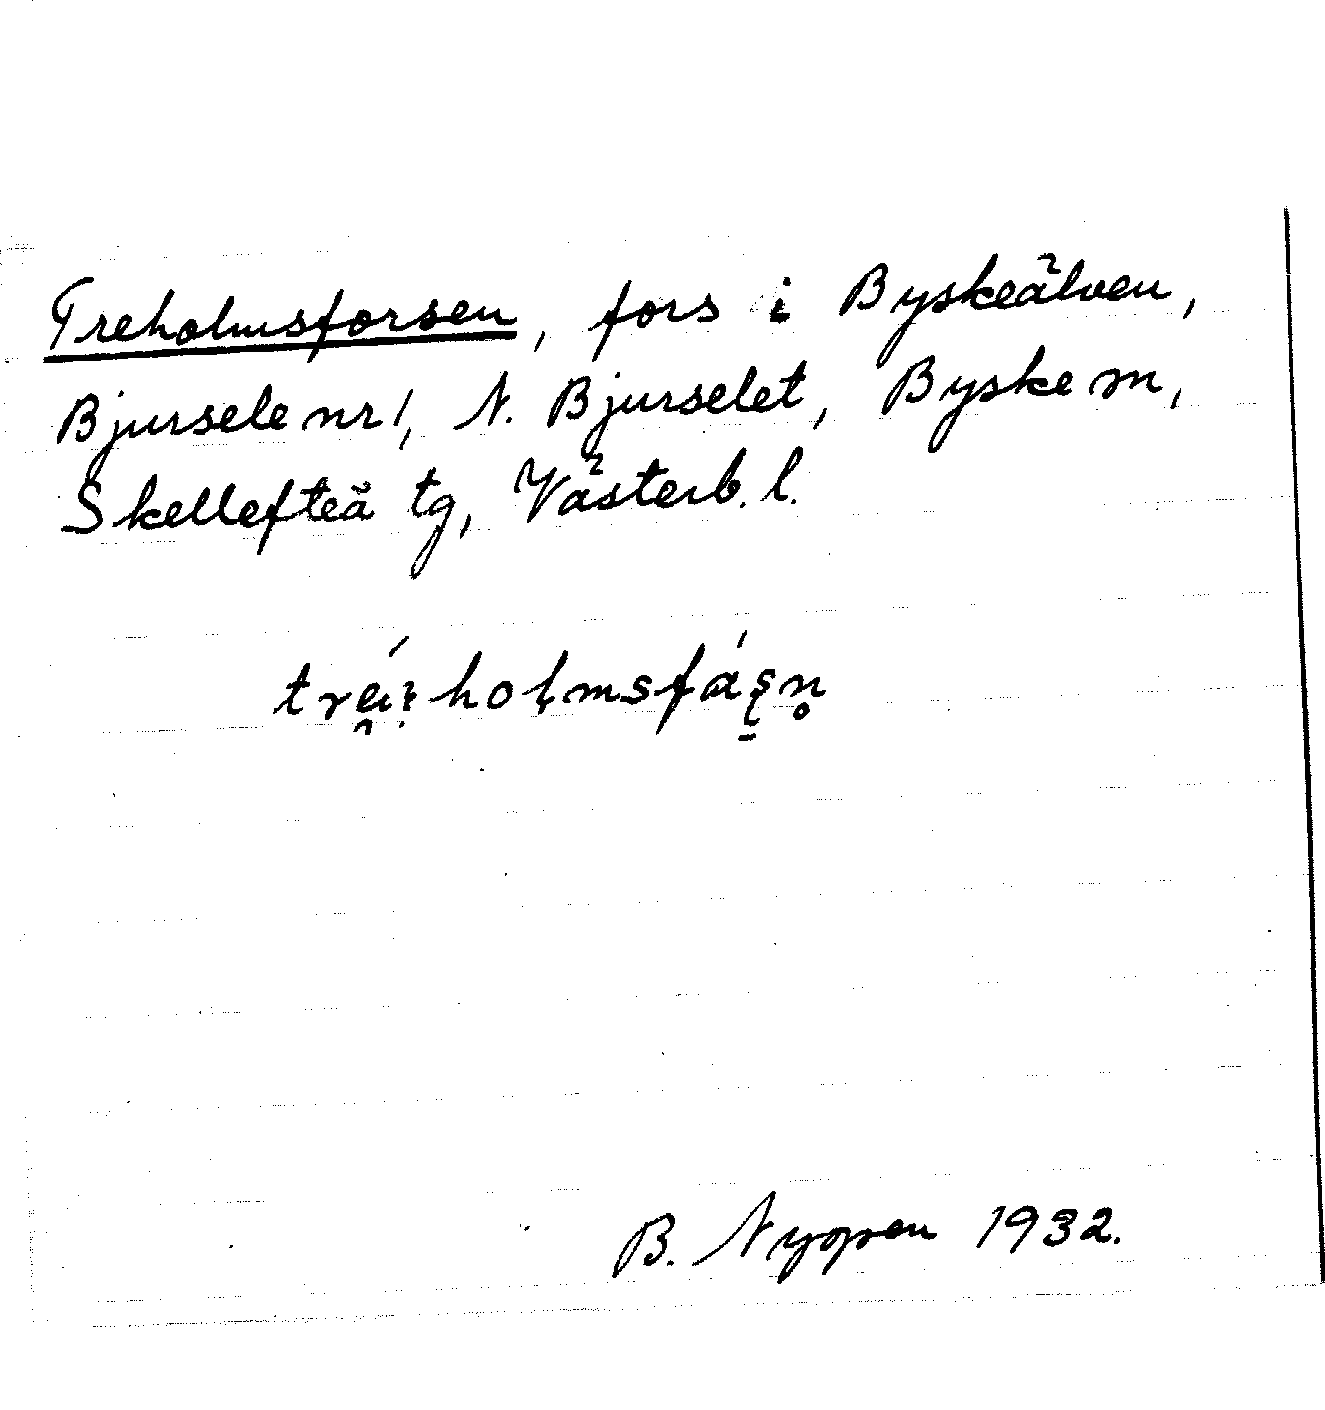 Treholmsforsen, fors i Byskeälven,
Bjursele nr 1, N. Bjurselet, Byske m,
Skellefteå tg, Västerb. l.
B. Nyopen 1932.